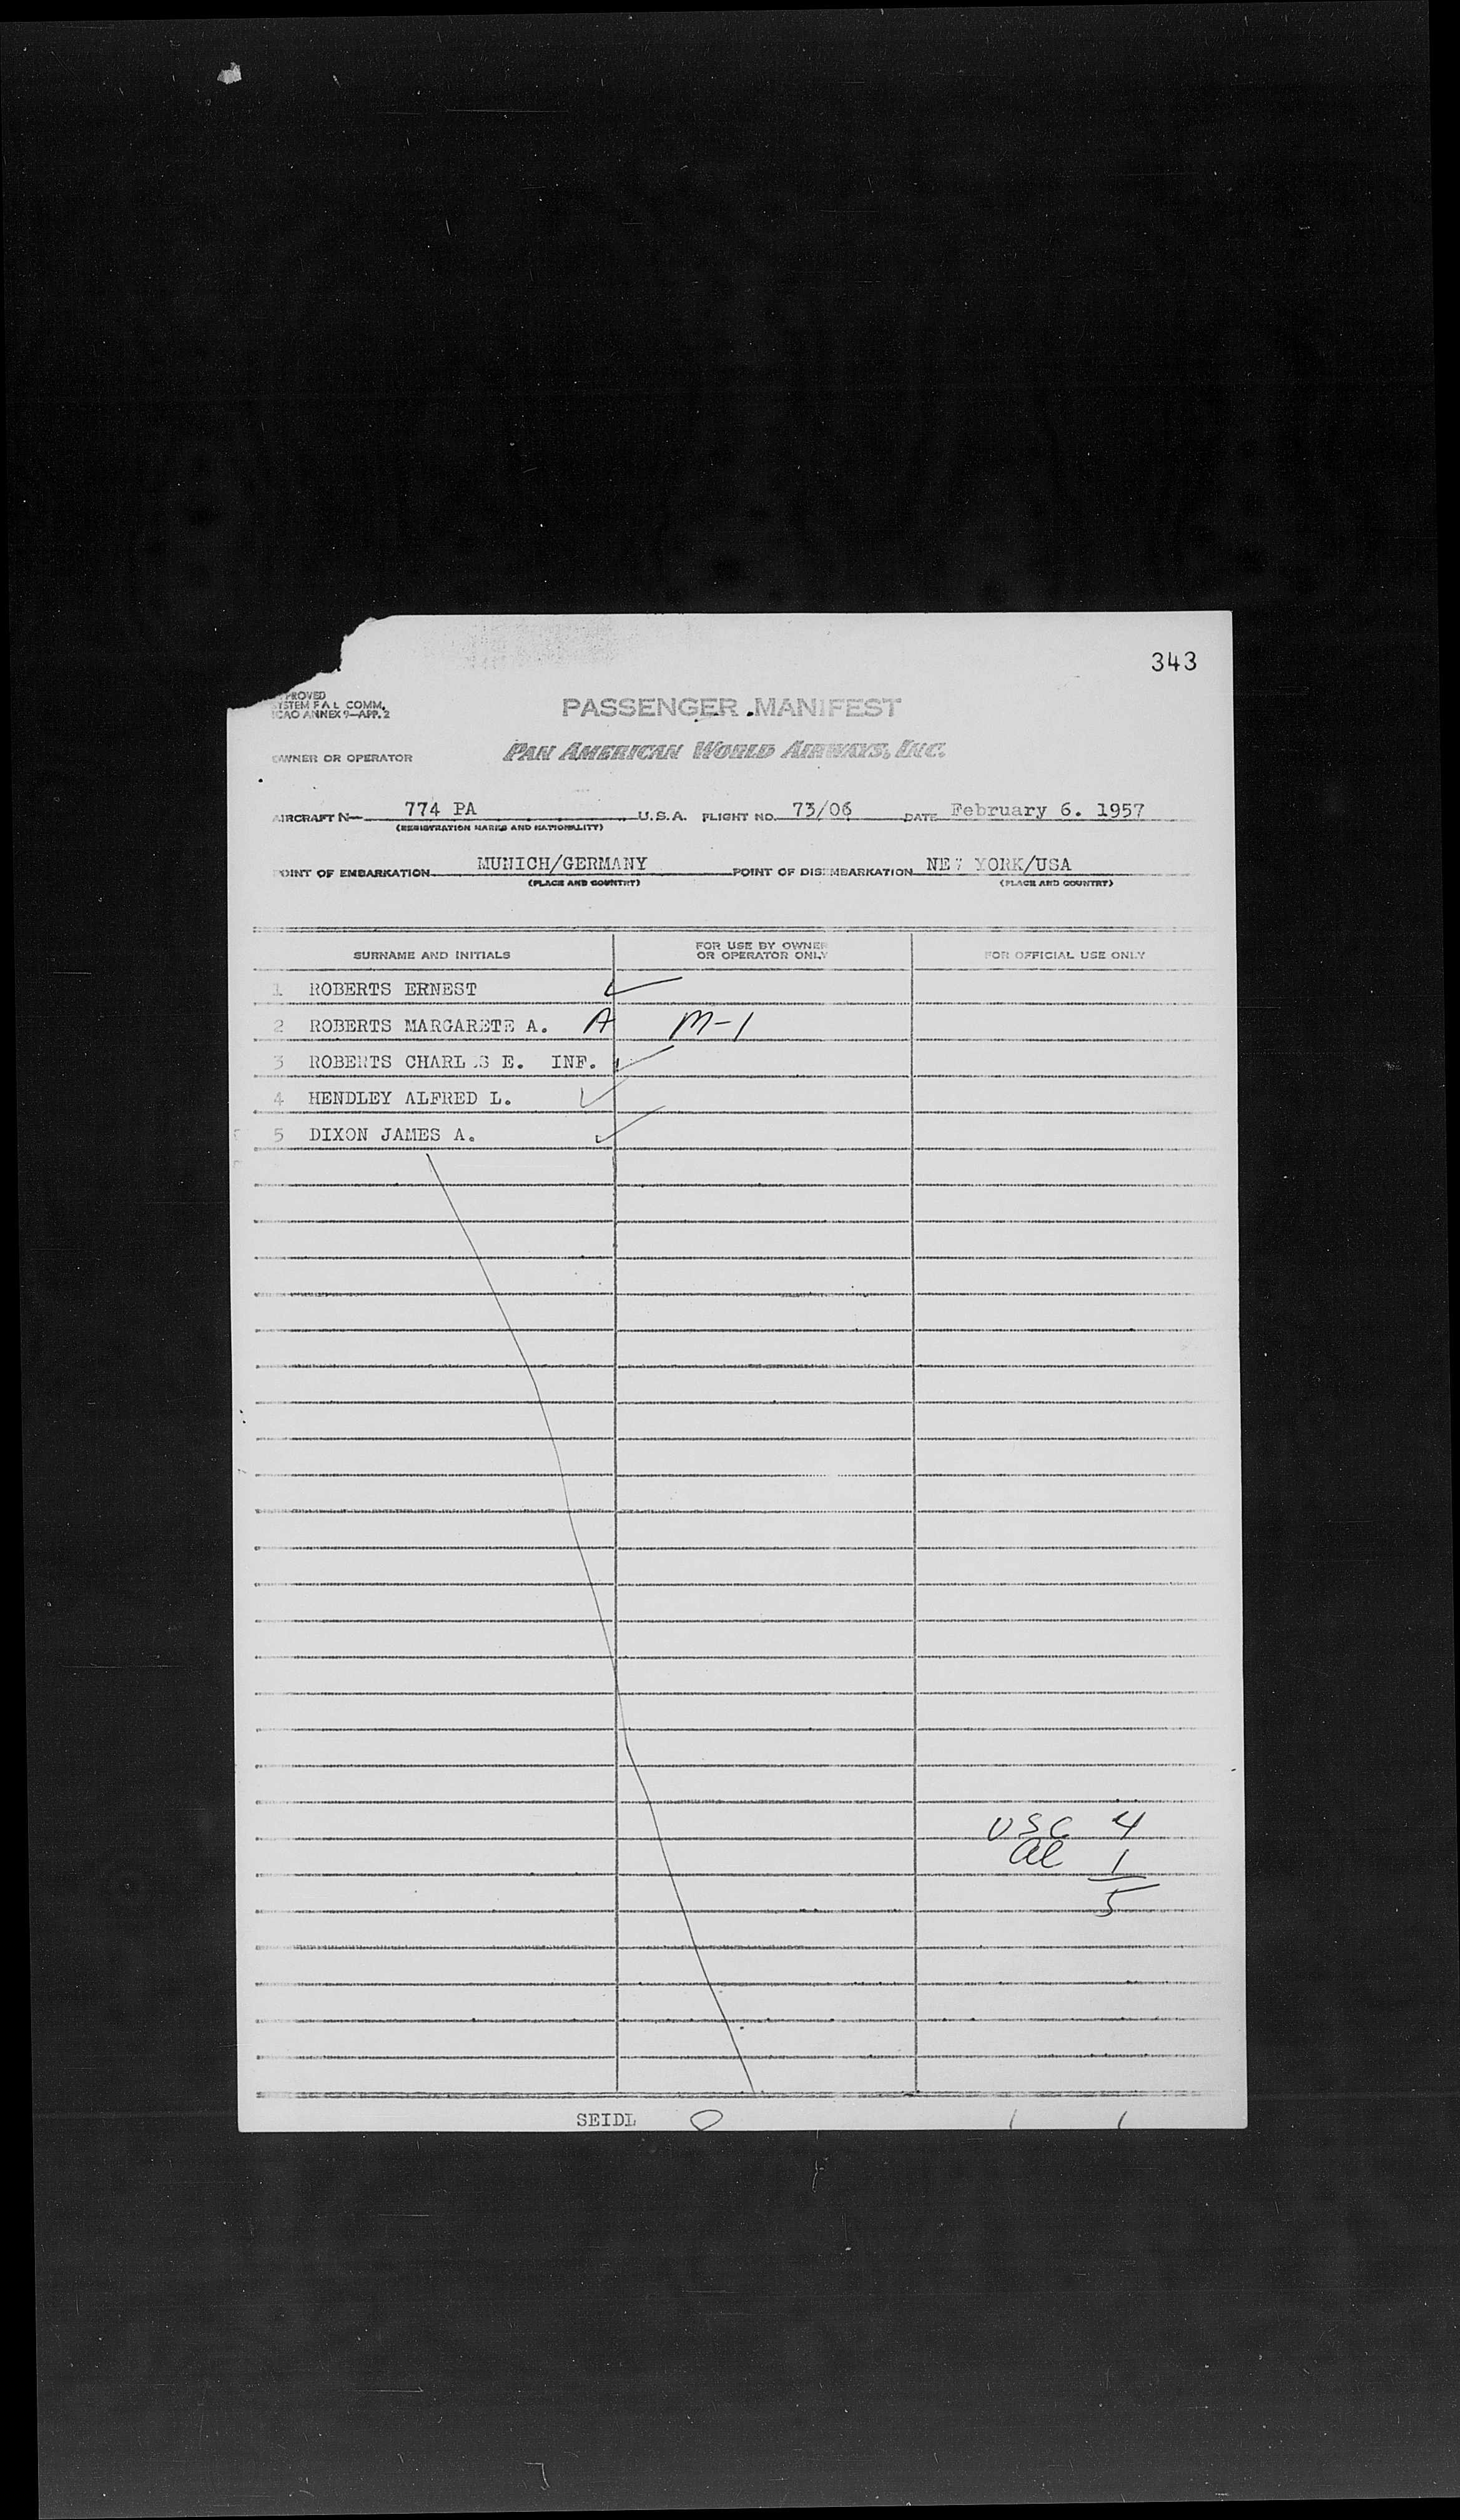 343
PROVED
YSTEM F A L COMM.
ICAO ANNEX 9—APP. 2
PASSENGER MANIFEST
OWNER OR OPERATOR
PAN AMERICAN WORLD AIRWAYS, INC.
AIRCRAFT N— 774 PA U.S.A. FLIGHT NO. 73/06 DATE February 6. 1957
(REGISTRATION MARKS AND NATIONALITY)
POINT OF EMBARKATION MUNICH/GERMANY POINT OF DISEMBARKATION NEW YORK/USA
(PLACE AND COUNTRY) (PLACE AND COUNTRY)
SURNAME AND INITIALS FOR USE BY OWNER OR OPERATOR ONLY FOR OFFICIAL USE ONLY
1 ROBERTS ERNEST ✓
2 ROBERTS MARGARETE A. A M-1
3 ROBERTS CHARL.S E. INF. ✓
4 HENDLEY ALFRED L. ✓
5 DIXON JAMES A. ✓
USC 4
al 1
5
SEIDL